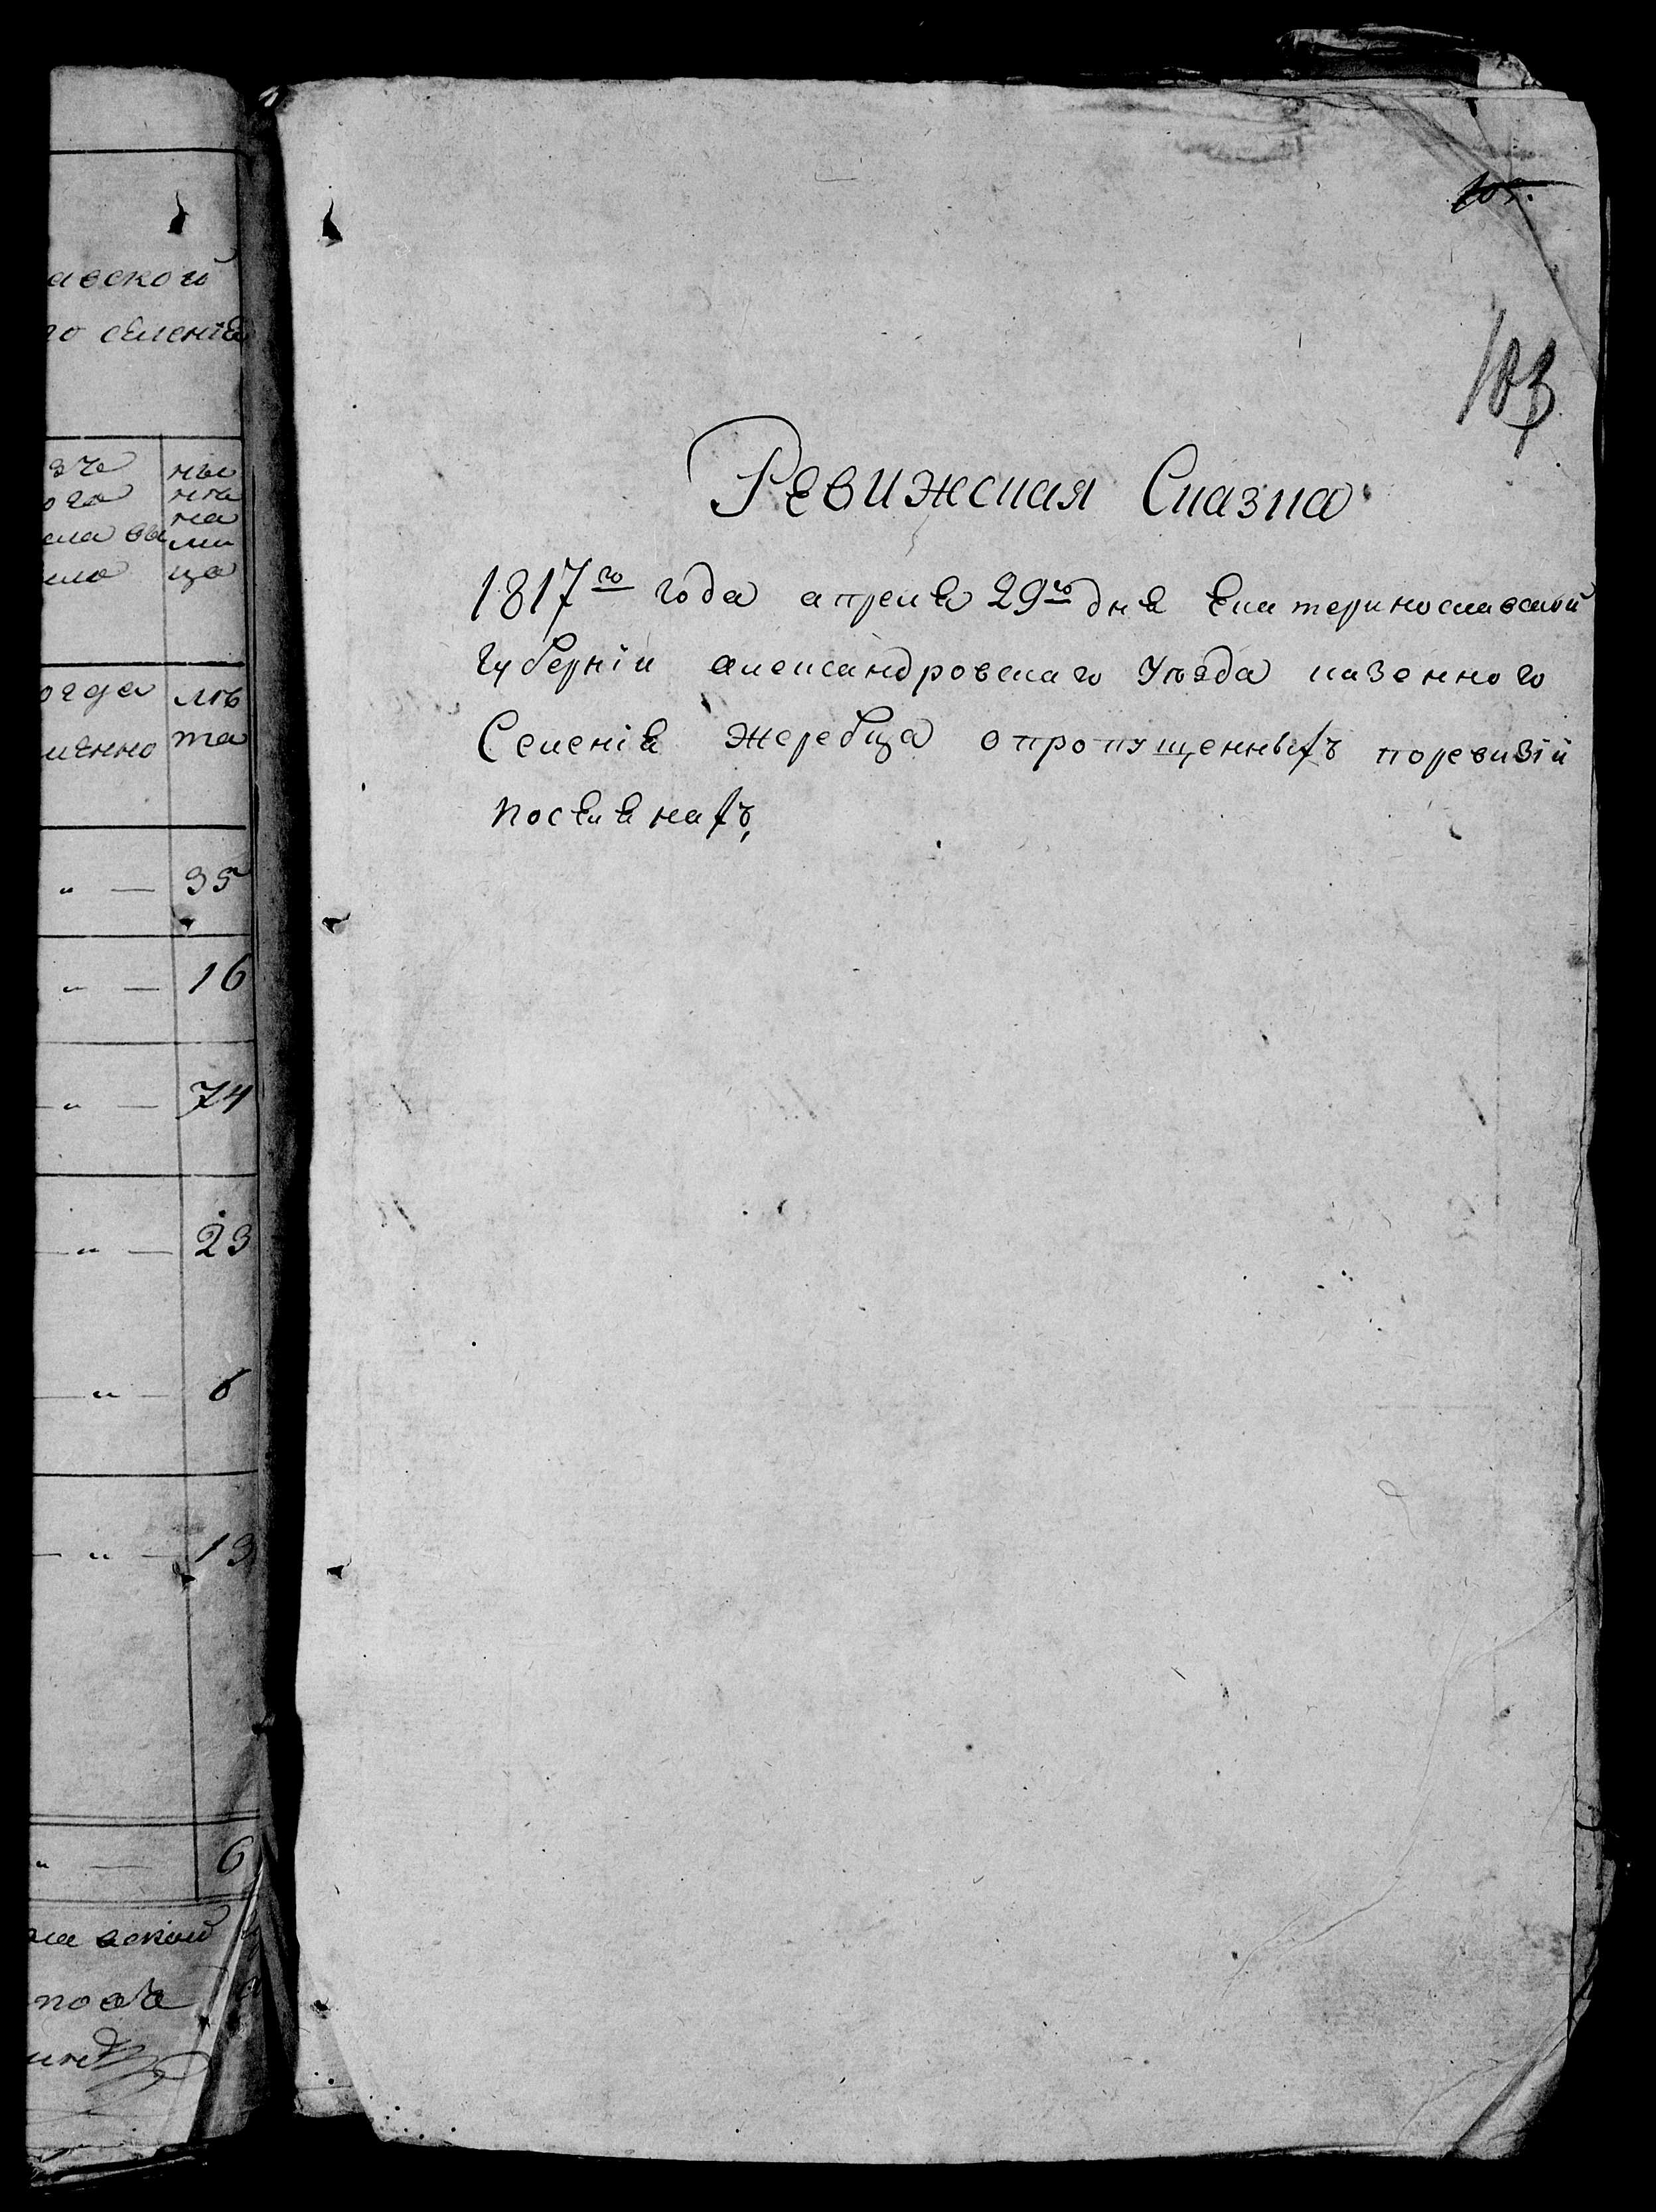 авского
го селенія
изъ
ога
ла вы
ны
нѣ
на
ли
ца
огда
менно
лѣ
та
" — 35
" — 16
" — 74
" — 23
" — 6
" — 13
" — 6
105.
103
Ревижская Сказка
1817го года апреля 29го дня Екатеринославской
губерніи александровскаго Уѣзда казенного
Селенія Жеребца опропущенныхъ поревизіи
поселянахъ,